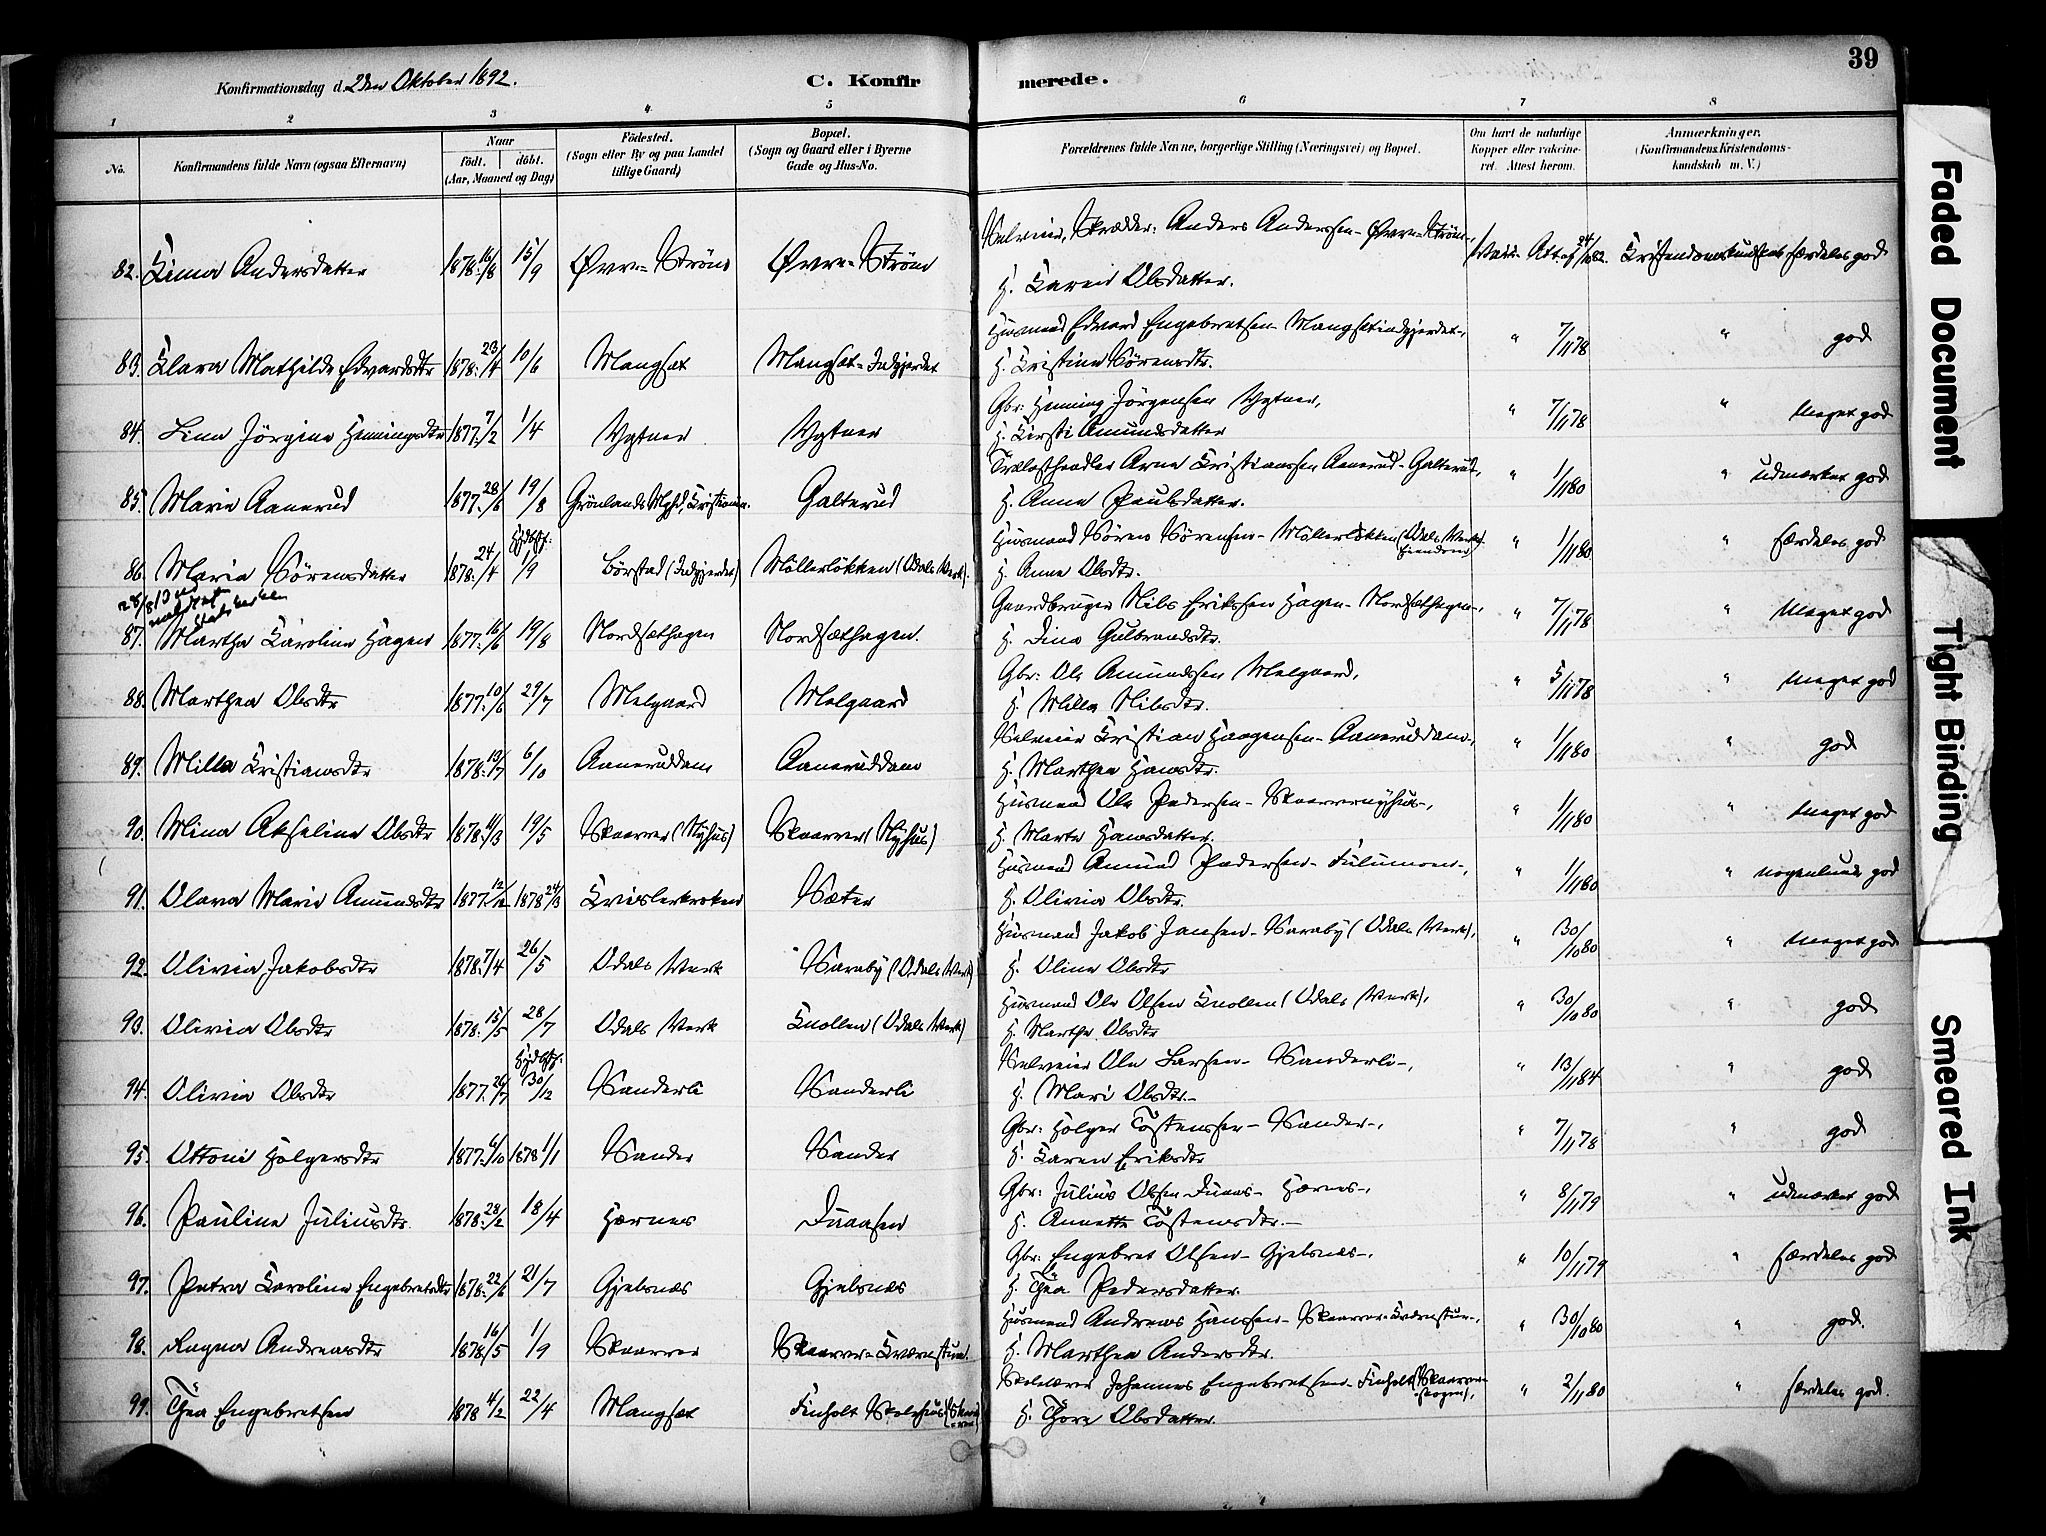 39
Konfirmationsdag d. 2den Oktober 1892. C. Konfirmerede.
1 2 3 4 5 6 7 8
No. Konfirmandens fulde Navn (ogsaa Efternavn) Naar født. døbt. (Aar, Maaned og Dag) Födested. (Sogn eller By og paa Landet tillige Gaard) Bopæl. (Sogn og Gaard eller i Byerne Gade og Hus-No. Forældrenes fulde Navne, borgerlige Stilling (Næringsvei) og Bopæl. Om havt de naturlige Kopper eller vakcineret. Attest herom. Anmærkninger. (Konfirmandens Kristendomskundskab m. V.)
82. Kima Andersdatter 1878 16/8 15/9 Øvre-Strøm Øvre-Strøm Selveier, Skrædder: Anders Anderssen Øvre-Strøm, H. Karen Olsdatter. Kristendomskundskab særdeles god
83. Klara Mathilde Edvardsdtr 1878 23/4 10/6 Mangset Mangset-Indgjerdet Husmand Edvard Engebretsen Mangsetindgjerdet, H. Kristine Sørensdtr. " 7/11 78 " god
84. Lina Jörgine Henningsdtr 1877 7/2 1/4 Ygtner Ygtner Gbr: Henning Jörgensen Ygtner, H. Kirsti Amundsdatter " 7/11 78 " Meget god
85. Marie Aanerud 1877 28/6 19/8 Grönlands Mghd, Kristiania. Galterud Trælasthandler Arne Kristianssen Aanerud-Galterud, H. Anne Paulsdatter. " 1/11 80 " udmærket god
86. Maria Sörensdatter 1878 24/4 Hjdbf: 1/9 Börstad (Indgjerdet) Möllerlökken (Odals Verk). Husmand Sören Sörensen-Möllerlökken (Odals Verks Eiendom) H. Anne Olsdtr. " 1/11 80 " særdeles god
87. Martha Karoline Hagen 1877 16/6 19/8 Nordsæthagen Nordsæthagen. Gaardbruger Nils Eriksen Hagen-Nordsæthagen, H. Dina Gulbrandsdtr. " 7/11 78 " Meget god
88. Marthea Olsdtr 1877 10/6 29/7 Melgaard Melgaard Gbr: Ole Amundsen Melgaard, H. Milla Nilsdtr. " 5/11 78 " Meget god
89. Milla Kristiansdtr 1878 13/7 6/10 Aaneruddam Aaneruddam Selveier Kristian Haagensen-Aaneruddam, H. Marthea Hansdtr. " 1/11 80 " god
90. Mina Akseline Olsdtr 1878 11/3 19/5 Skaarer (Nyhus) Skaarer (Nyhus) Husmand Ole Pedersen-Skaarernyhus, H. Marte Hansdatter. " 1/11 80 " Meget god
91. Olava Marie Amundsdtr 1877 12/12 1878 24/3 Kvislerkroken Sæter Husmand Amund Pedersen, H. Olivia Olsdtr. " 1/11 80 " nogenlunde god
92. Olivia Jakobsdtr 1878 7/4 26/5 Odals Verk Saraby (Odals Verk) Husmand Jakob Jansen-Saraby (Odals Verk), H. Oline Olsdtr " 30/10 80 " Meget god
93. Olivia Olsdtr 1878 15/5 28/7 Odals Verk Knollen (Odals Verk) Husmand Ole Olsen Knollen (Odals Verk), H. Marthe Olsdtr " 30/10 80 " god
94. Olivia Olsdtr 1877 26/7 Hjdbf: 30/12 Sanderli Sanderli Selveier Ole Larsen-Sanderli, H. Mari Olsdtr. " 13/11 84 " god
95. Ottoni Holgersdtr 1877 6/10 1878 1/1 Sander Sander Gbr: Holger Töstenssen-Sander, H. Karen Eriksdtr " 7/11 78 " god
96. Pauline Juliusdtr. 1878 28/2 18/4 Hernes Duaasen Gbr: Julius Olsen Duaas-Hernes, H. Annette Töstensdtr. " 8/11 79 " udmærket god
97. Petra Karoline Engebretsdtr 1878 22/6 21/7 Gjelsnæs Gjelsnæs Gbr: Engebret Olsen-Gjelsnæs, H. Thea Pedersdatter. " 10/11 79 " særdeles god
98. Ragna Andreasdtr 1878 16/5 1/9 Skaarer Skaarer-Kværnstuen. Husmand Andreas Hanssen-Skaarer-Kværnstuen, H. Marthea Andersdtr. " 30/10 80 " god.
99. Thea Engebretsen 1878 4/2 22/4 Mangset Finholt Skolehus Skolelærer Johannes Engebretsen-Finholt (Skaarerskogen), H. Thora Olsdatter. " 2/11 80 " særdeles god.
Faded Document
Tight Binding
Smeared Ink